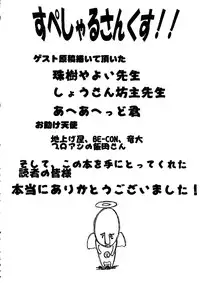 すぺしゃるさんくす!!
ゲスト原稿描いて頂いた
珠樹やよい先生
しょうさん坊主先生
あへあへっど君
お助け天使
地上げ屋、BE-CON、竜大
スロアシの飯田さん
そして、この本を手にとってくれた
読者の皆様
本当にありがとうございました!